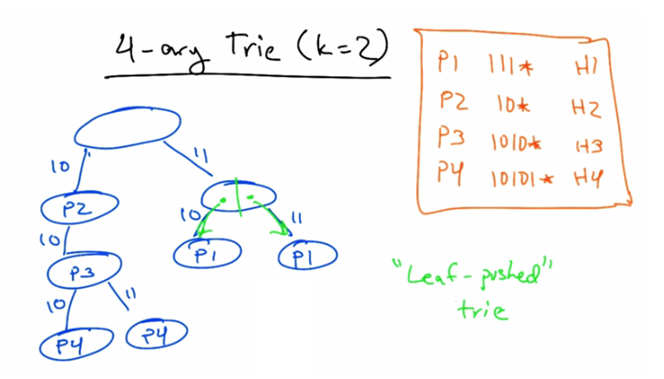 4-ary Trie (k=2)
P1 111* H1
P2 10* H2
P3 1010* H3
P4 10101* H4
10 11
P2
10 11
10
P1 P1
P3
10 11
P4 P4
"Leaf-pushed"
trie